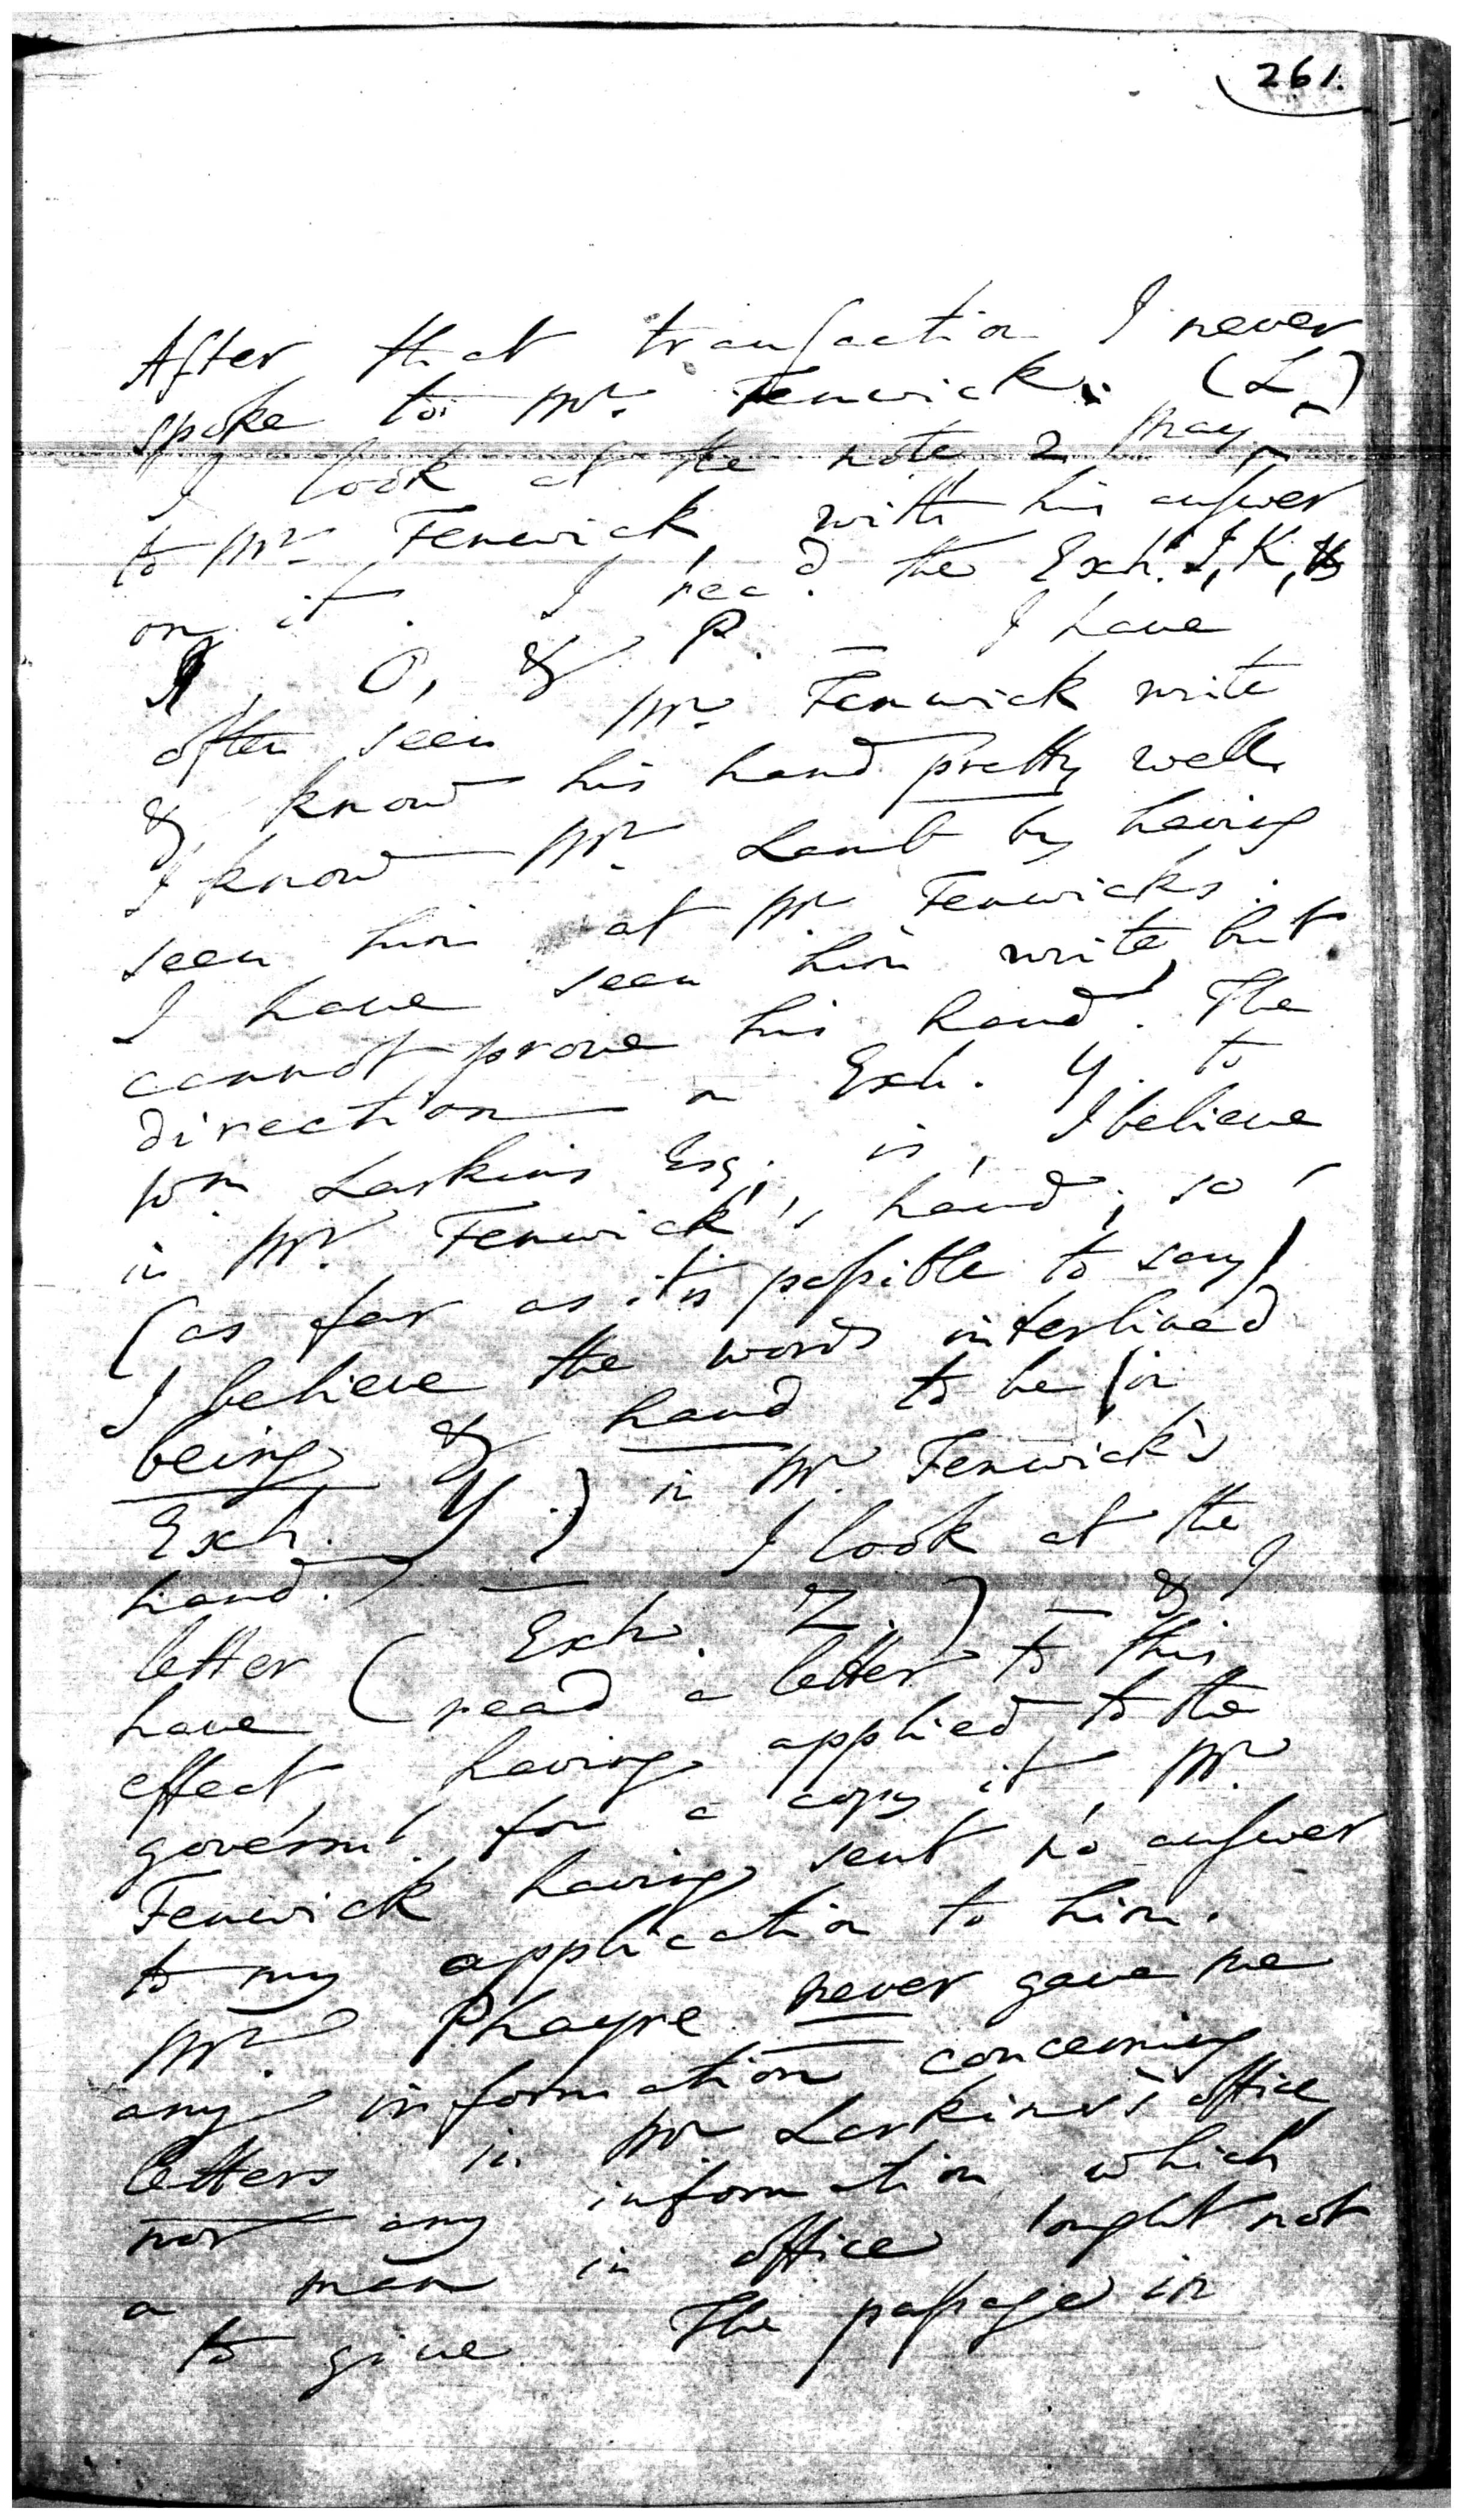 261.
After that transaction I never
spoke to Mr. Fenwick. (L)
I look at the note, 2 May,
to Mr. Fenwick, with his answer
on it. I rec'd. the Exh. I, K,
O, & P. — I have
often seen Mr. Fenwick write
& know his hand pretty well.
I know Mr. Lamb by having
seen him at Mr Fenwicks.
I have seen him write, but
cannot prove his hand. The
direction on Exh. Y. to
Wm. Larkins Esq. is, I believe
in Mr. Fenwick's hand; so
(as far as it is possible to say)
I believe the words interlined
being & hand to be (in
Exh. Y.) in Mr. Fenwick's
hand. — I look at the
letter (Exh. Z.) — & I
have read a letter to this
effect, having applied to the
governmt. for a copy it, Mr.
Fenwick having sent no answer
to my application to him.
Mr. Phayre never gave me
any information concerning
letters in Mr Larkins's office
nor any information which
a man in office ought not
to give. The passage in